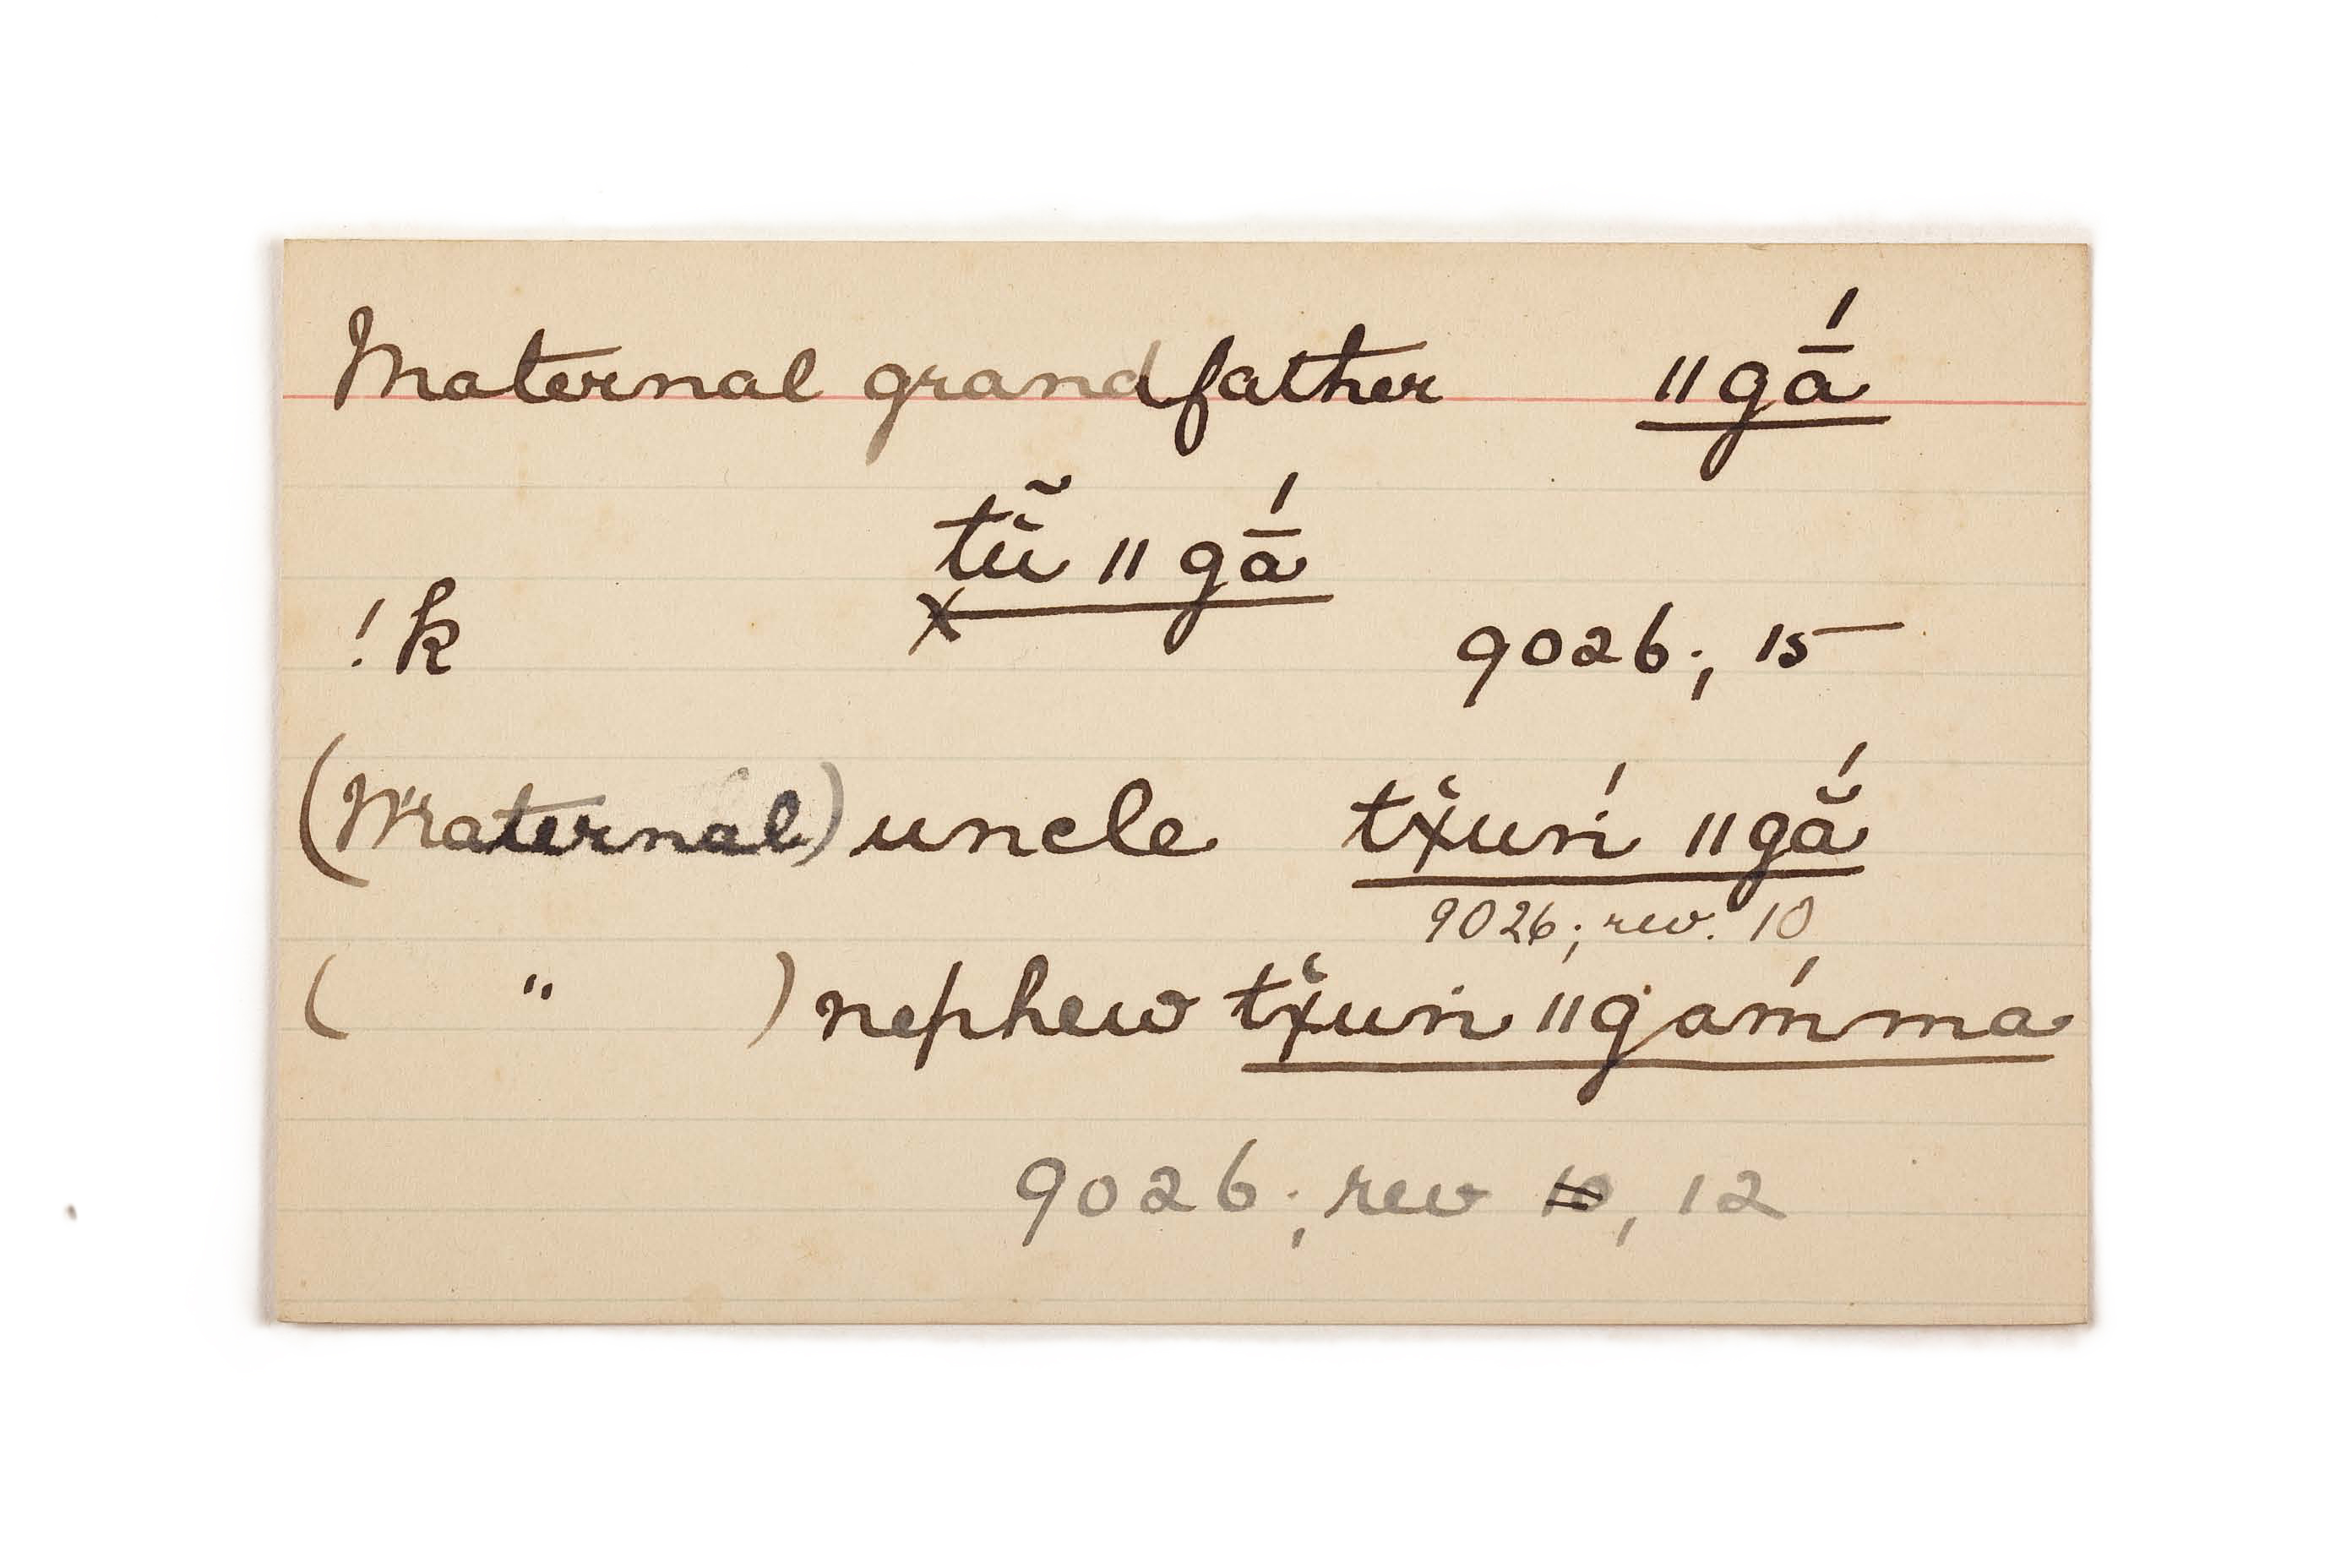 Maternal grandfather ǁgā́
tŭ̀ ǁgā́
!k × 9026; 15
(Maternal) uncle tx̆uń ǁgằ́
9026; rev. 10
( " ) nephew tx̆uṅ ǁgam̍ma
9026; rev 10, 12